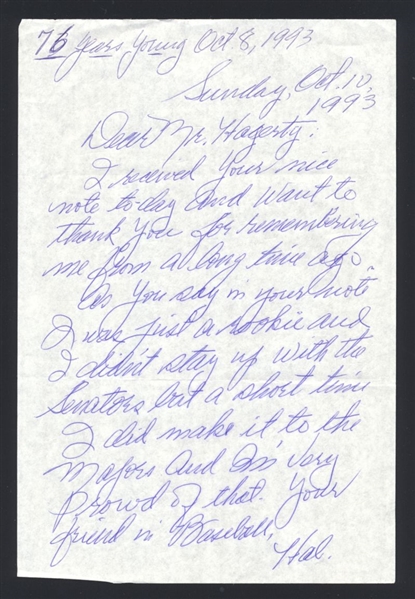 76 years young Oct 8, 1993
Sunday, Oct. 10,
1993
Dear Mr. Hagerty:
I received your nice
note today and want to
thank you for remembering
me from a long time ago.
As you say in your note
I was just a rookie and
I didn't stay up with the
Senators but a short time
I did make it to the
Majors and I'm very
proud of that. Your
friend in Baseball,
Hal.